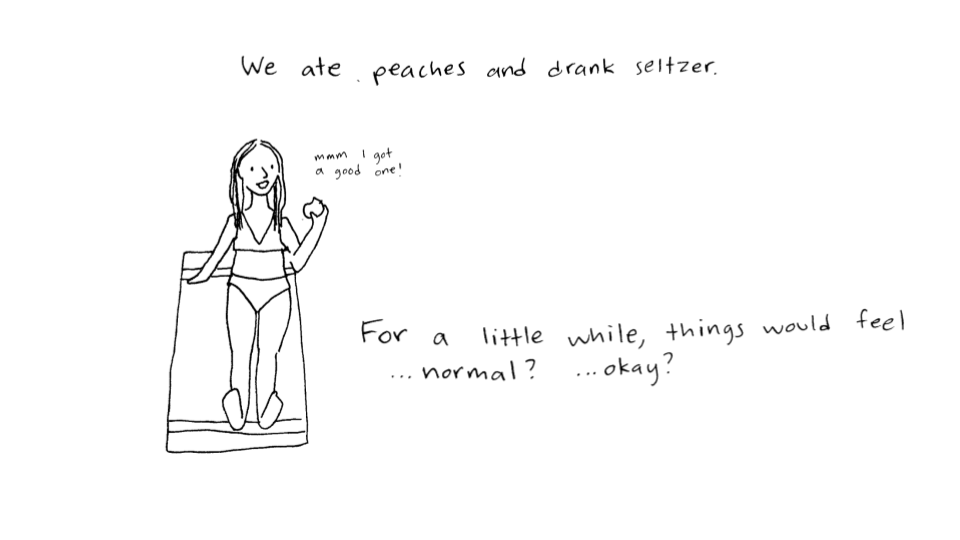 We ate peaches and drank seltzer.
mmm I got
a good one!
For a little while, things would feel
...normal? ...okay?